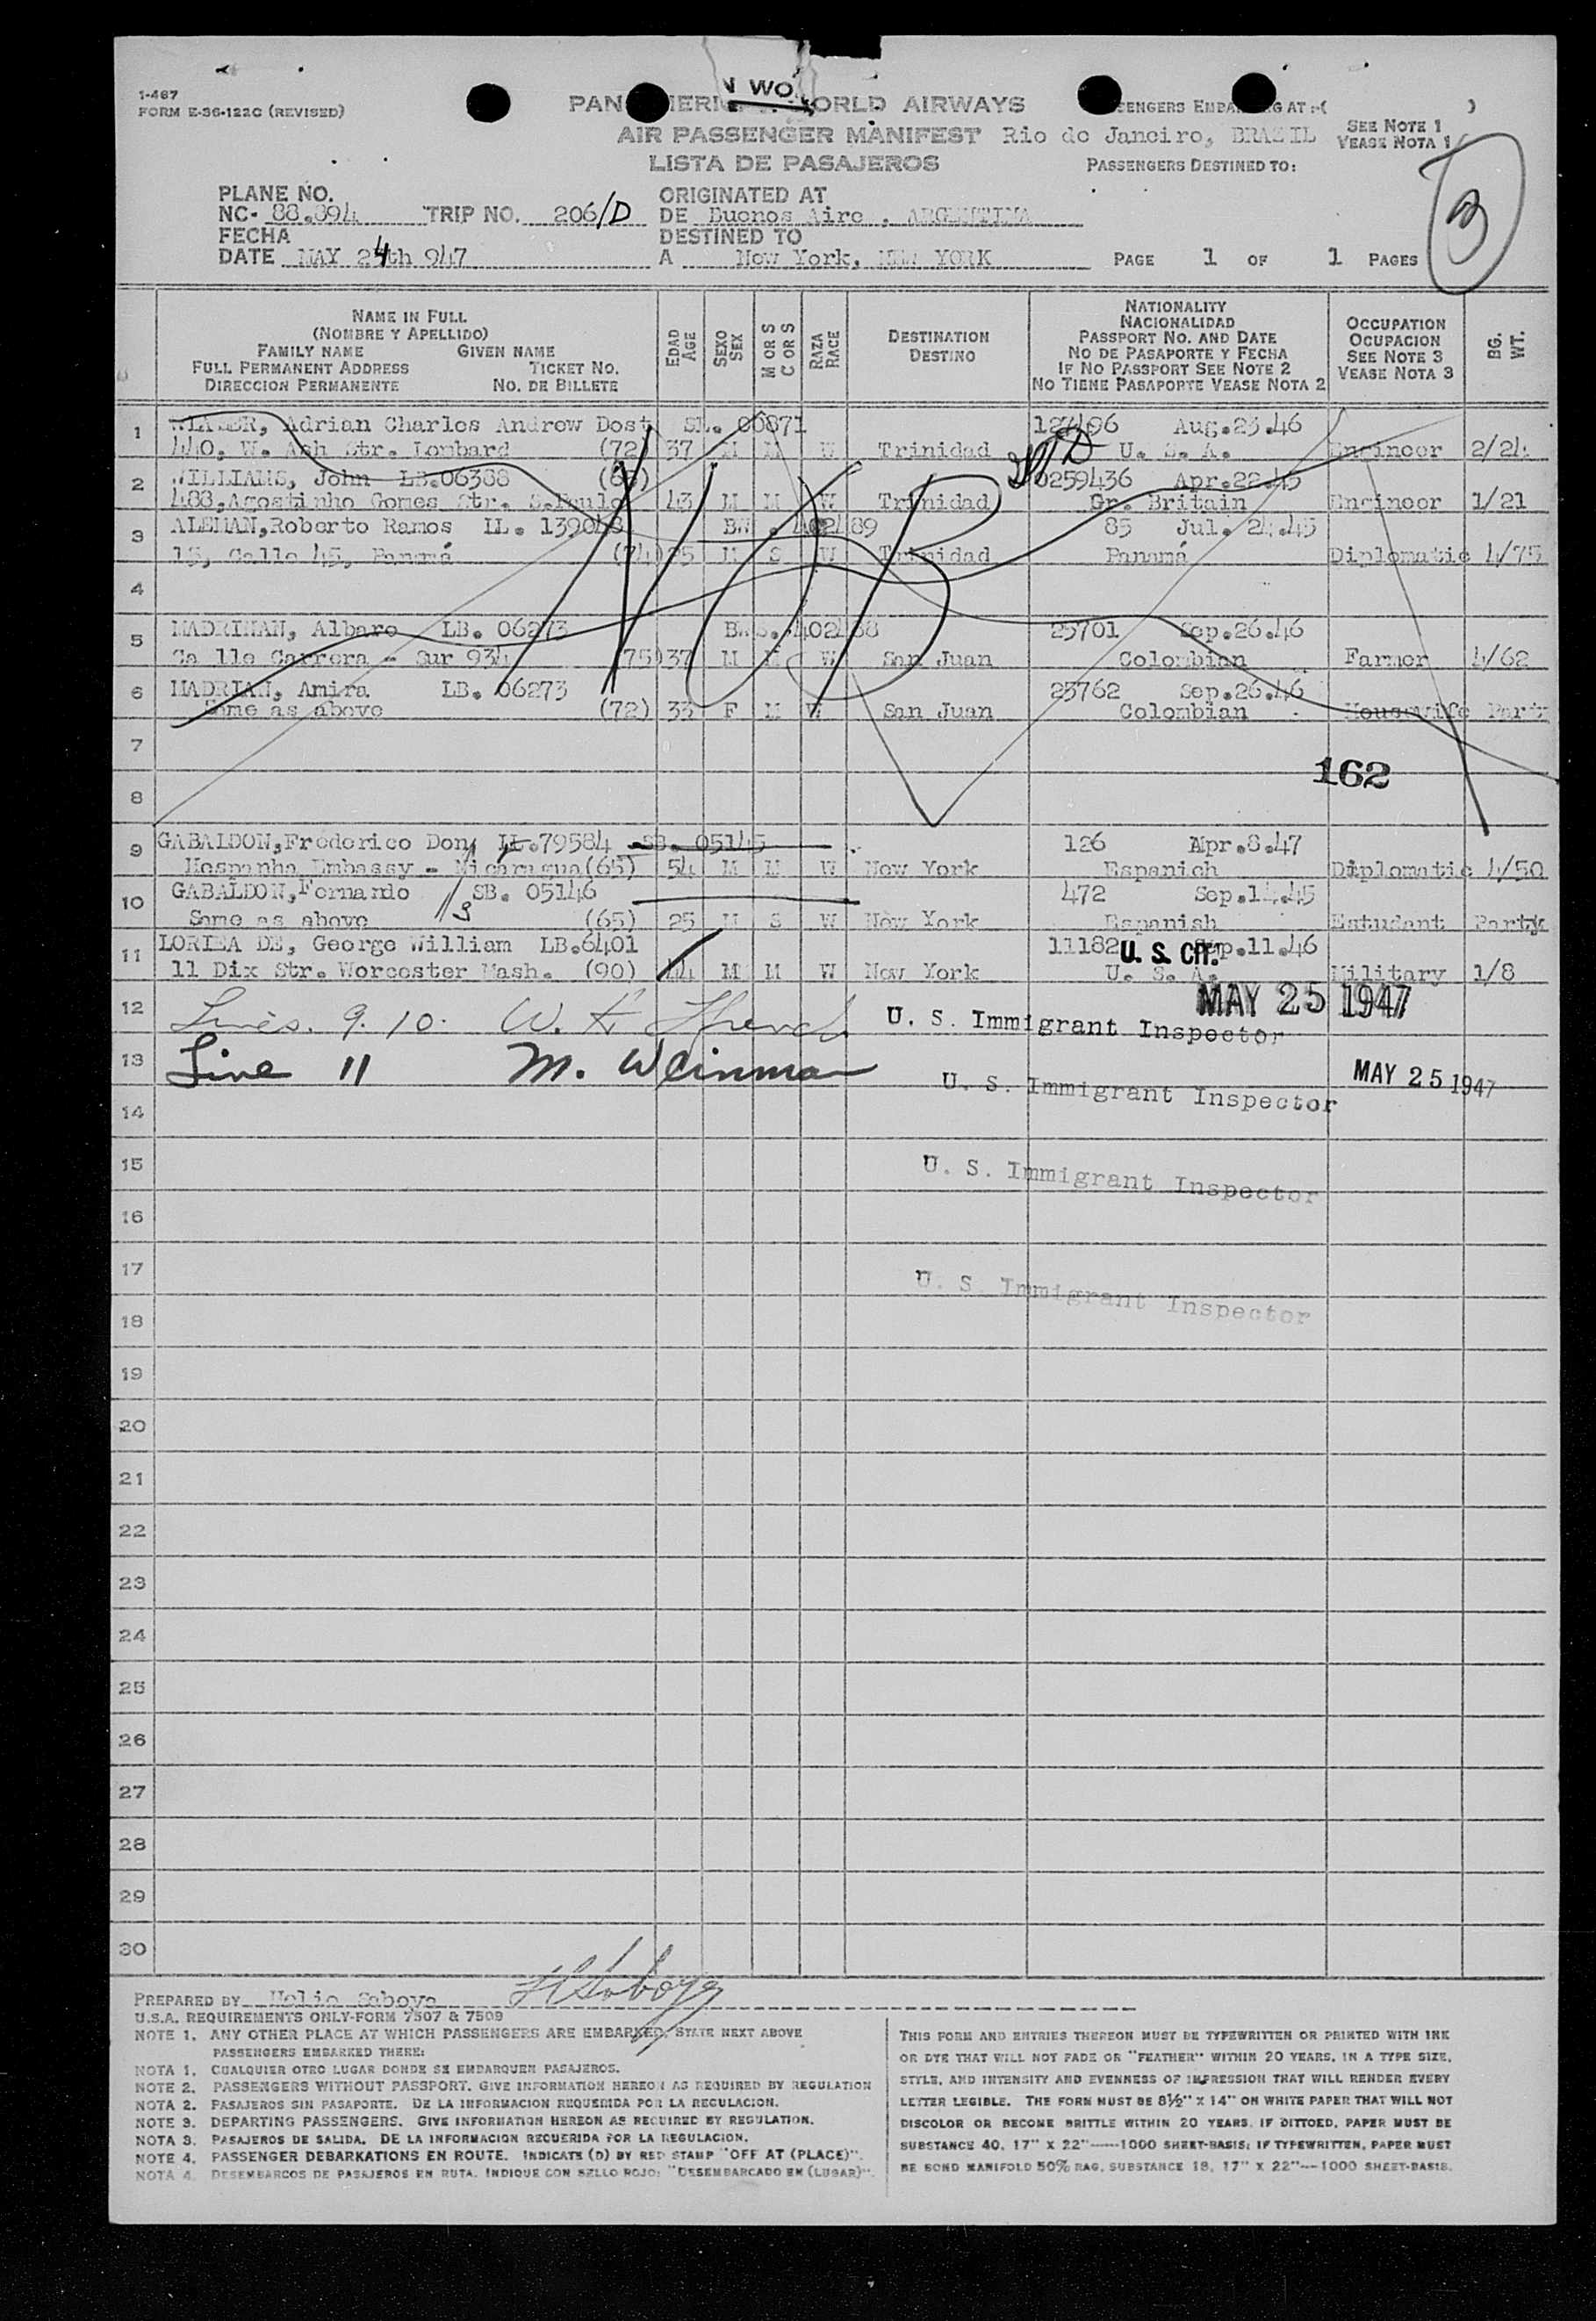 1-467
FORM E-36-122C (REVISED)
N WO
PAN WORLD AIRWAYS
AIR PASSENGER MANIFEST
LISTA DE PASAJEROS
PASSENGERS EMBARKING AT :-( )
Rio de Janeiro, BRASIL
SEE NOTE 1
VEASE NOTA 1
PASSENGERS DESTINED TO:
3
PLANE NO.
NC- 88.894 TRIP NO. 206/D
ORIGINATED AT
DE Buenos Aires, ARGENTINA
FECHA
DATE MAY 24th 947
DESTINED TO
A New York, NEW YORK
PAGE 1 OF 1 PAGES
NAME IN FULL
(NOMBRE Y APELLIDO)
FAMILY NAME GIVEN NAME
FULL PERMANENT ADDRESS TICKET NO.
DIRECCION PERMANENTE NO. DE BILLETE
EDAD AGE
SEXO SEX
M OR S C OR S
RAZA RACE
DESTINATION
DESTINO
NATIONALITY
NACIONALIDAD
PASSPORT NO. AND DATE
NO DE PASAPORTE Y FECHA
IF NO PASSPORT SEE NOTE 2
NO TIENE PASAPORTE VEASE NOTA 2
OCCUPATION
OCUPACION
SEE NOTE 3
VEASE NOTA 3
BG. WT.
1 Adrian Charles Andrew Dost SL. 06871 Aug.23.46
440, W. Ash Str. Lombard (72) 37 M M W Trinidad U. S. A. Engineer 2/24
2 WILLIAMS, John LB.06388 0259436 Apr.22.45
488,Agostinho Gomes Str. S.Paulo 43 M M W Trinidad Gr. Britain Engineer 1/21
3 ALEMAN,Roberto Ramos IL. 85 Jul. 24.45
15, Calle 45, Panamá (74) 25 M S W Trinidad Panamá Diplomatic 4/75
4
5 MADRINAN, Albaro LB. 06273 25701 Sep.26.46
Ca lle Carrera - Sur 934 (75) 37 M M W San Juan Colombian Farmer 4/62
6 MADRIAN, Amira LB. 06273 25762 Sep.26.46
Same as above (72) 33 F M W San Juan Colombian Housewife Party
7
162
8
9 GABALDON,Frederico Don IL.79584 SB. 05145 126 Apr.8.47
Hespanha Embassy - Nicaragua(65) 54 M M W New York Espanish Diplomatic 4/50
10 GABALDON,Fernando SB. 05146 472 Sep.14.45
Same as above (65) 25 M S W New York Espanish Estudant Party
11 LORIEA DE, George William LB.6401 11182 Sep.11.46
U. S. CIT.
11 Dix Str. Worcester Mash. (90) 44 M M W New York U. S. A. Military 1/8
12 Lines. 9. 10. W. K. U. S. Immigrant Inspector MAY 25 1947
13 Line 11 M. Weinman U. S. Immigrant Inspector MAY 25 1947
14
15 U. S. Immigrant Inspector
16
17 U. S. Immigrant Inspector
18
19
20
21
22
23
24
25
26
27
28
29
30
PREPARED BY Helio Saboya
U.S.A. REQUIREMENTS ONLY-FORM 7507 & 7509
NOTE 1. ANY OTHER PLACE AT WHICH PASSENGERS ARE EMBARKED, STATE NEXT ABOVE
PASSENGERS EMBARKED THERE:
NOTA 1. CUALQUIER OTRO LUGAR DONDE SE EMBARQUEN PASAJEROS.
NOTE 2. PASSENGERS WITHOUT PASSPORT. GIVE INFORMATION HEREON AS REQUIRED BY REGULATION
NOTA 2. PASAJEROS SIN PASAPORTE. DE LA INFORMACION REQUERIDA POR LA REGULACION.
NOTE 3. DEPARTING PASSENGERS. GIVE INFORMATION HEREON AS REQUIRED BY REGULATION.
NOTA 3. PASAJEROS DE SALIDA. DE LA INFORMACION REQUERIDA POR LA REGULACION.
NOTE 4. PASSENGER DEBARKATIONS EN ROUTE. INDICATE (D) BY RED STAMP "OFF AT (PLACE)".
NOTA 4. DESEMBARCOS DE PASAJEROS EN RUTA. INDIQUE CON SELLO ROJO: "DESEMBARCADO EN (LUGAR)".
THIS FORM AND ENTRIES THEREON MUST BE TYPEWRITTEN OR PRINTED WITH INK
OR DYE THAT WILL NOT FADE OR "FEATHER" WITHIN 20 YEARS, IN A TYPE SIZE,
STYLE, AND INTENSITY AND EVENNESS OF IMPRESSION THAT WILL RENDER EVERY
LETTER LEGIBLE. THE FORM MUST BE 8½" X 14" ON WHITE PAPER THAT WILL NOT
DISCOLOR OR BECOME BRITTLE WITHIN 20 YEARS. IF DITTOED, PAPER MUST BE
SUBSTANCE 40, 17" X 22"-----1000 SHEET-BASIS; IF TYPEWRITTEN, PAPER MUST
BE BOND MANIFOLD 50% RAG, SUBSTANCE 18, 17" X 22"---1000 SHEET-BASIS.